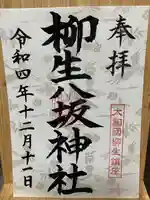 奉拝
大和國柳生鎮座
柳生八坂神社
令和四年十二月十一日